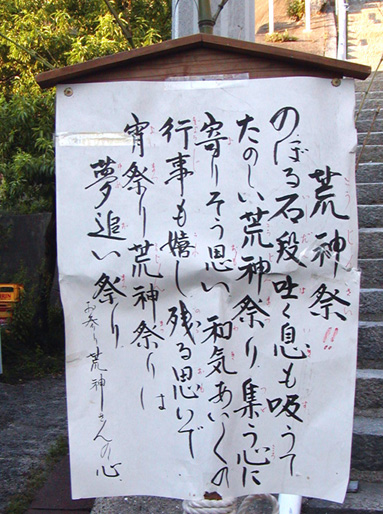 荒神祭!!
のぼる石段吐く息も吸うて
たのしい荒神祭り集う心に
寄りそう思い和気あいくの
行事も嬉し残る思いで
宵祭り荒神祭りは
夢追い祭り
お参り荒神さんの心